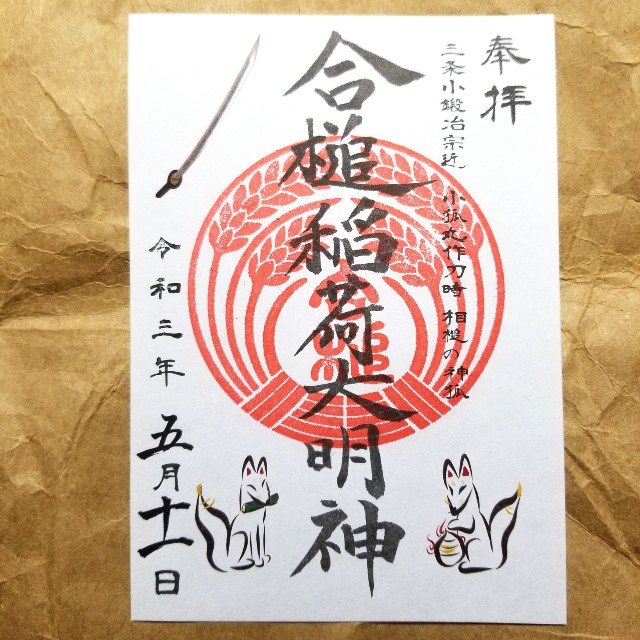 奉拝
三条小鍛冶宗近 小狐丸作刀時 相槌の神狐
合槌稲荷大明神
令和三年 五月十一日